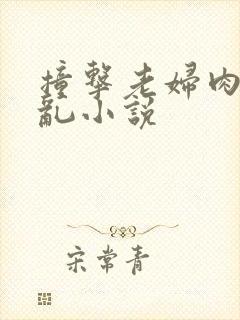 撞擊老婦肉
亂小説
宋常青